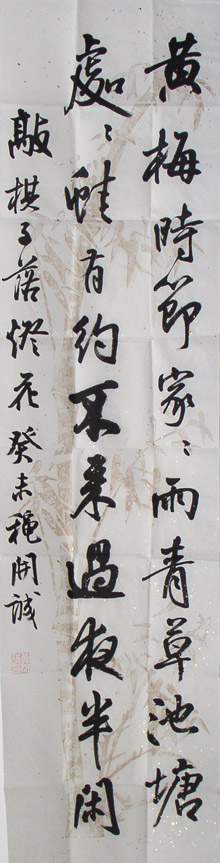 黄梅時節家々雨青草池塘
處々蛙有約不来過夜半閑
敲棋子落燈花癸未穐開誠